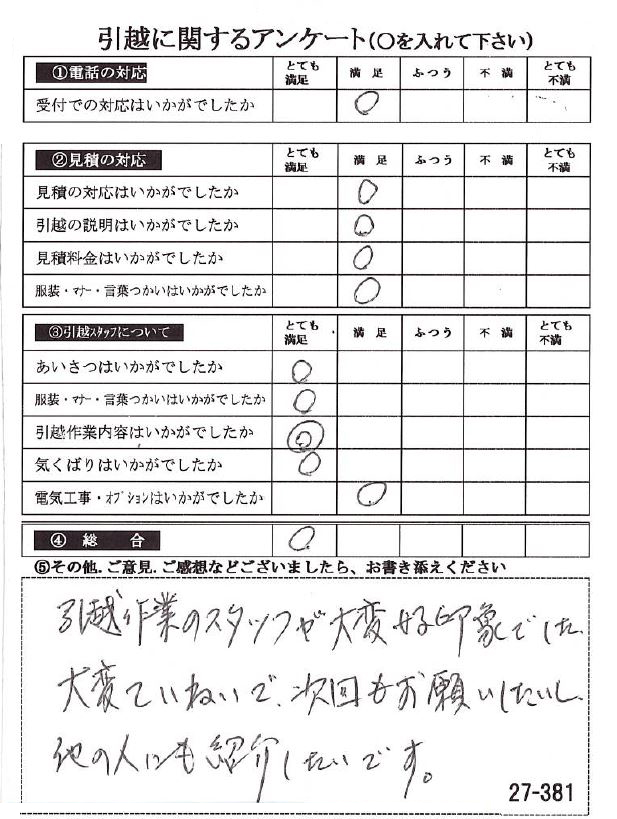 引越に関するアンケート(○を入れて下さい)
①電話の対応 とても満足 満足 ふつう 不満 とても不満
受付での対応はいかがでしたか ○
②見積の対応 とても満足 満足 ふつう 不満 とても不満
見積の対応はいかがでしたか ○
引越の説明はいかがでしたか ○
見積料金はいかがでしたか ○
服装・マナー・言葉つかいはいかがでしたか ○
③引越スタッフについて とても満足 満足 ふつう 不満 とても不満
あいさつはいかがでしたか ○
服装・マナー・言葉つかいはいかがでしたか ○
引越作業内容はいかがでしたか ◎
気くばりはいかがでしたか ○
電気工事・オプションはいかがでしたか ○
④ 総 合 ○
⑤その他.ご意見.ご感想などございましたら、お書き添えください
引越作業のスタッフが大変好印象でした.
大変ていねいで、次回もお願いしたいし、
他の人にも紹介したいです。
27-381